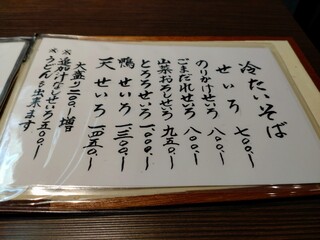 冷たいそば
せいろ 七〇〇ー
のりかけせいろ 八〇〇ー
ごまだれせいろ 八〇〇ー
山菜おろしせいろ 九五〇ー
とろろせいろ 一、〇〇〇ー
鴨せいろ 一、三〇〇ー
天せいろ 一、四五〇ー
大盛り二〇〇ー増
※追加汁なしせいろ五〇〇ー
※うどんも出来ます